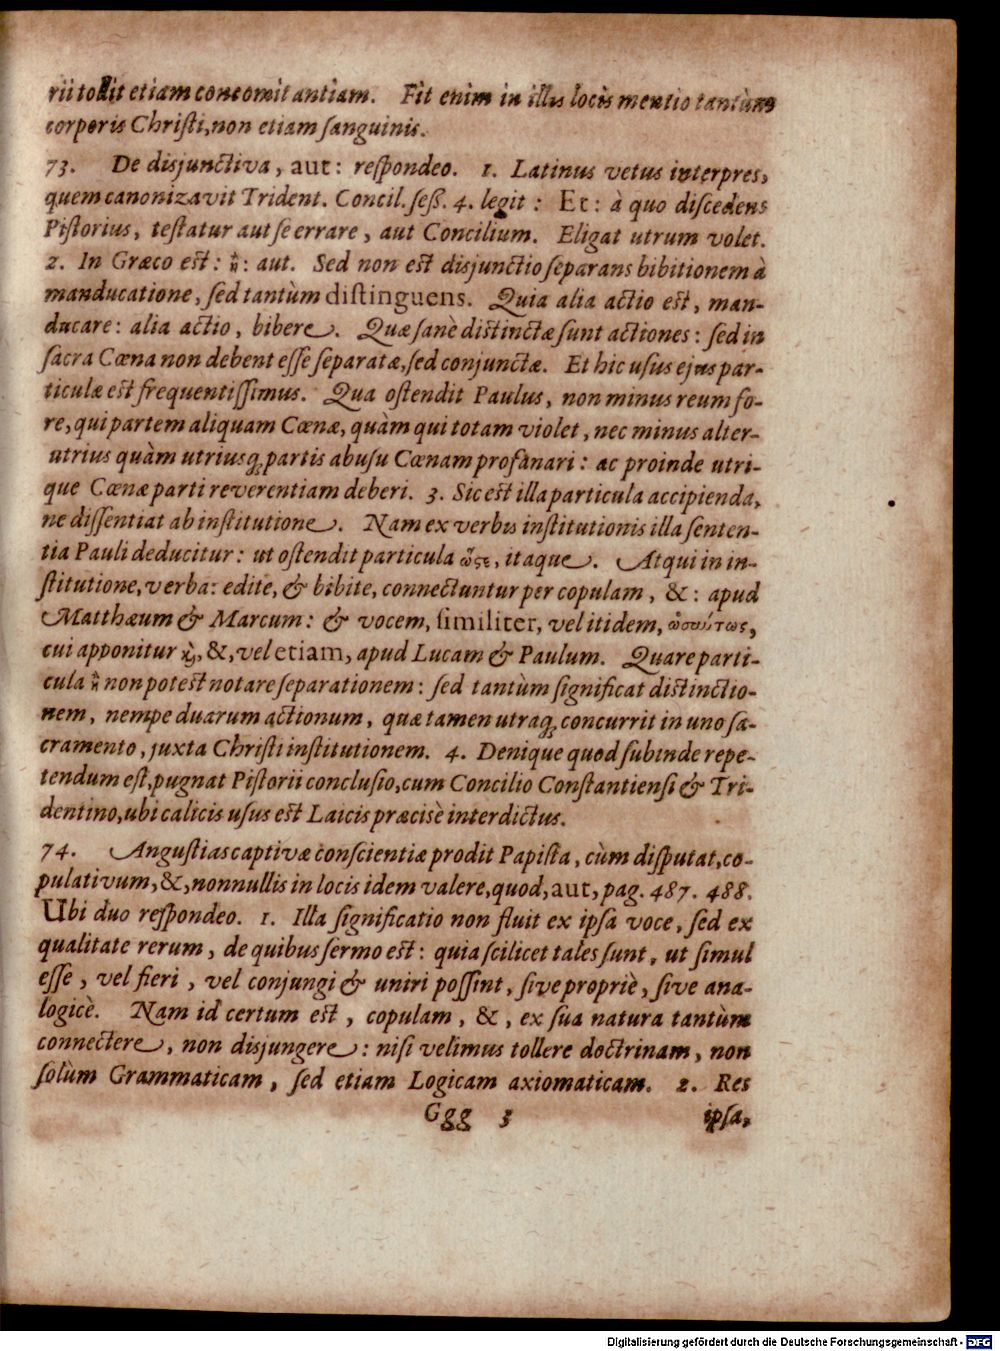 rii tollit etiam concomitantiam. Fit enim in illis locis mentio tantùm
corporis Christi, non etiam sanguinis.
73. De disjunctiva, aut: respondeo. 1. Latinus vetus interpres,
quem canonizavit Trident. Concil. seß. 4. legit: Et: à quo discedens
Pistorius, testatur aut se errare, aut Concilium. Eligat utrum volet.
2. In Græco est: ἢ: aut. Sed non est disjunctio separans bibitionem à
manducatione, sed tantùm distinguens. Quia alia actio est, man-
ducare: alia actio, bibere. Quæ sanè distinctæ sunt actiones: sed in
sacra Cœna non debent esse separatæ, sed conjunctæ. Et hic usus ejus par-
ticulæ est frequentissimus. Qua ostendit Paulus, non minus reum fo-
re, qui partem aliquam Cœnæ, quàm qui totam violet, nec minus alter-
utrius quàm utriusq; partis abusu Cœnam profanari: ac proinde utri-
que Cœnæ parti reverentiam deberi. 3. Sic est illa particula accipienda,
ne dissentiat ab institutione. Nam ex verbis institutionis illa senten-
tia Pauli deducitur: ut ostendit particula ὥςε, itaque. Atqui in in-
stitutione, verba: edite, & bibite, connectuntur per copulam, &: apud
Matthæum & Marcum: & vocem, similiter, vel itidem, ὡσαύτως,
cui apponitur ϗ, &, vel etiam, apud Lucam & Paulum. Quare parti-
cula ἢ non potest notare separationem: sed tantùm significat distinctio-
nem, nempe duarum actionum, quæ tamen utraq; concurrit in uno sa-
cramento, juxta Christi institutionem. 4. Denique quod subinde repe-
tendum est, pugnat Pistorii conclusio, cum Concilio Constantiensi & Tri-
dentino, ubi calicis usus est Laicis præcisè interdictus.
74. Angustias captivæ conscientiæ prodit Papista, cùm disputat, co-
pulativum, &, nonnullis in locis idem valere, quod, aut, pag. 487. 488.
Ubi duo respondeo. 1. Illa significatio non fluit ex ipsa voce, sed ex
qualitate rerum, de quibus sermo est: quia scilicet tales sunt, ut simul
esse, vel fieri, vel conjungi & uniri possint, sive propriè, sive ana-
logicè. Nam id certum est, copulam, &, ex sua natura tantùm
connectere, non disjungere: nisi velimus tollere doctrinam, non
solùm Grammaticam, sed etiam Logicam axiomaticam. 2. Res
Ggg 3 ipsa,
Digitalisierung gefördert durch die Deutsche Forschungsgemeinschaft - DFG